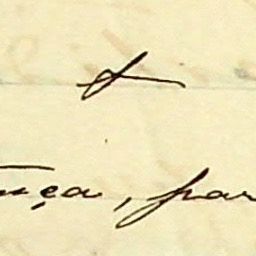 +
nça, par